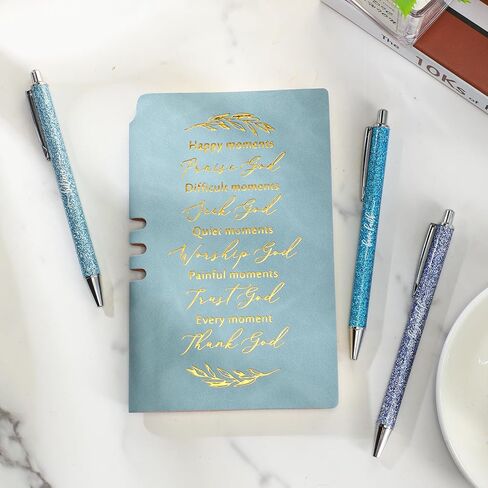 Happy moments
Praise God
Difficult moments
Seek God
Quiet moments
Worship God
Painful moments
Trust God
Every moment
Thank God
The
10Ks of